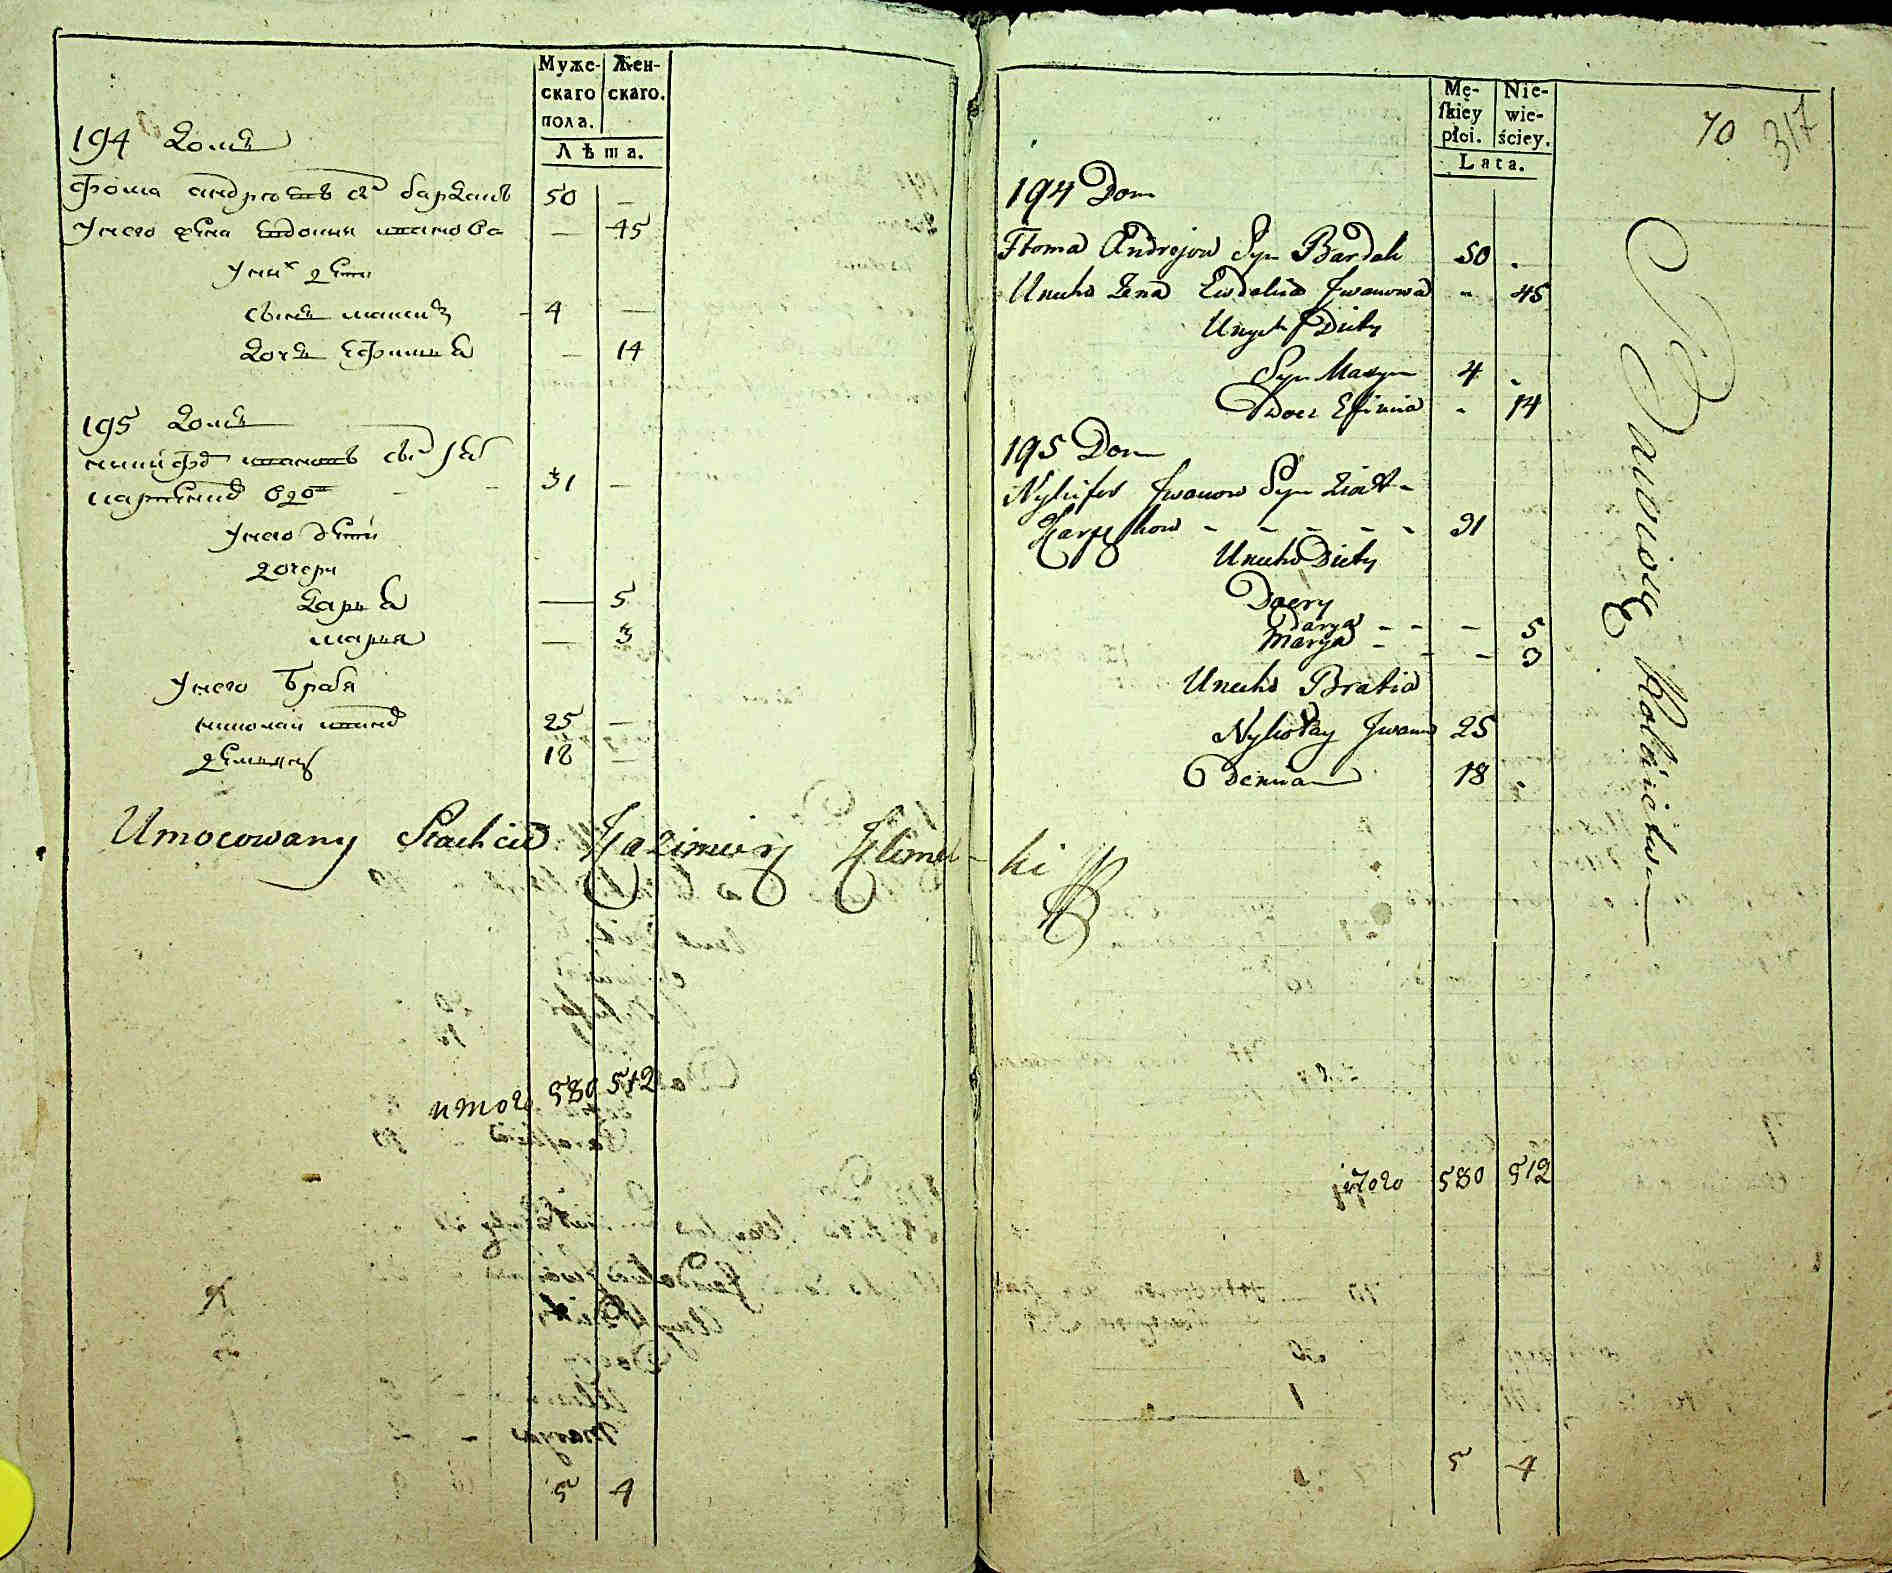 Муже-
скаго
пола.
Жен-
скаго.
Лѣта.
194 Домъ
Фома Андреевъ сынъ Бардакъ 50 -
У него жена Евдокия Иванова - 45
У них дети
сынъ Максимъ - 4 -
дочь Ефимия - 14
195 Домъ
Никифоръ Ивановъ сынъ
31 -
У него дети
дочери
Дарья - 5
Марья - 3
У него братя
Николай Иванов 25 -
Демьян 18 -
Umocowany Kazimierz Klimec-
ki
итого 580 512
5 4
Mę-
skiey
płci.
Nie-
wie-
ściey.
Lata.
70
317
194 Dom
Fhoma Andrejow Syn Bardak 50 -
Uneho Żena Ewdokia Iwanowa - 45
Unych Diety
Syn Maxym 4 -
Docz Efimia - 14
195 Dom
Nykifor Iwanow Syn Ziat-
Karpykow - - - - - 31
Uneho Diety
Doczry
Darya - - - 5
Marya - - - 3
Uneho Bratia
Nykołay Iwanow 25
Demian 18 -
itoho 580 512
5 4